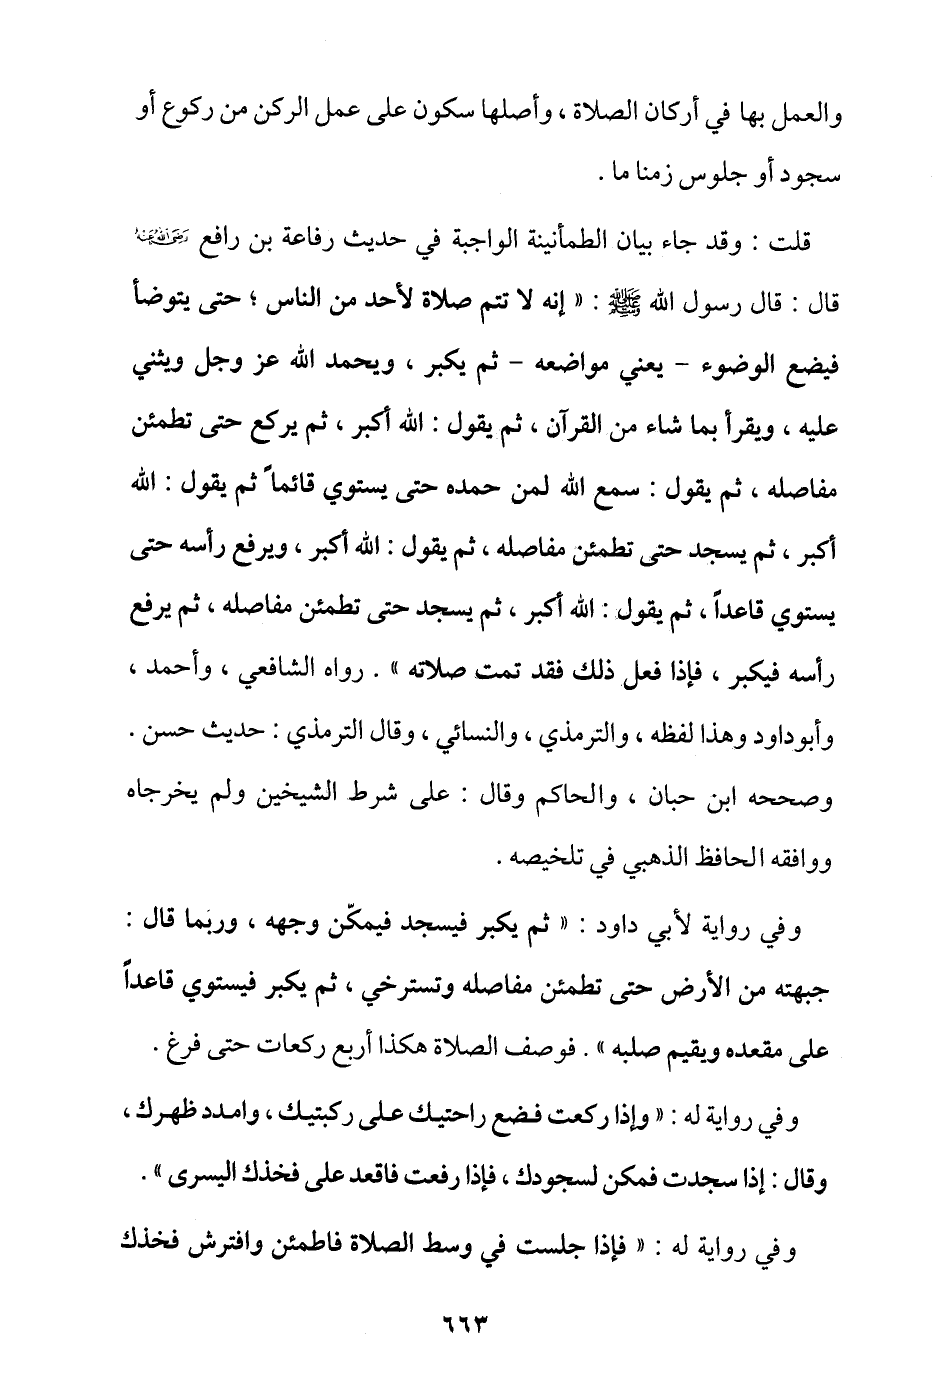 والعمل بها في أركان الصلاة ، وأصلها سكون على عمل الركن من ركوع أو
سجود أو جلوس زمنا ما .
قلت : وقد جاء بيان الطمأنينة الواجبة في حديث رفاعة بن رافع رَضِيَ اللهُ عَنْهُ
قال : قال رسول الله ﷺ : « إنه لا تتم صلاة لأحد من الناس ؛ حتى يتوضأ
فيضع الوضوء – يعني مواضعه – ثم يكبر ، ويحمد الله عز وجل ويثني
عليه ، ويقرأ بما شاء من القرآن ، ثم يقول : الله أكبر ، ثم يركع حتى تطمئن
مفاصله ، ثم يقول : سمع الله لمن حمده حتى يستوي قائماً ثم يقول : الله
أكبر ، ثم يسجد حتى تطمئن مفاصله ، ثم يقول : الله أكبر ، ويرفع رأسه حتى
يستوي قاعداً ، ثم يقول : الله أكبر ، ثم يسجد حتى تطمئن مفاصله ، ثم يرفع
رأسه فيكبر ، فإذا فعل ذلك فقد تمت صلاته » . رواه الشافعي ، وأحمد ،
وأبو داود وهذا لفظه ، والترمذي ، والنسائي ، وقال الترمذي : حديث حسن .
وصححه ابن حبان ، والحاكم وقال : على شرط الشيخين ولم يخرجاه
ووافقه الحافظ الذهبي في تلخيصه .
وفي رواية لأبي داود : « ثم يكبر فيسجد فيمكّن وجهه ، وربما قال :
جبهته من الأرض حتى تطمئن مفاصله وتسترخي ، ثم يكبر فيستوي قاعداً
على مقعده ويقيم صلبه » . فوصف الصلاة هكذا أربع ركعات حتى فرغ .
وفي رواية له : « وإذا ركعت فضع راحتيك على ركبتيك ، وامدد ظهرك ،
وقال : إذا سجدت فمكن لسجودك ، فإذا رفعت فاقعد على فخذك اليسرى » .
وفي رواية له : « فإذا جلست في وسط الصلاة فاطمئن وافترش فخذك
٦٦٣